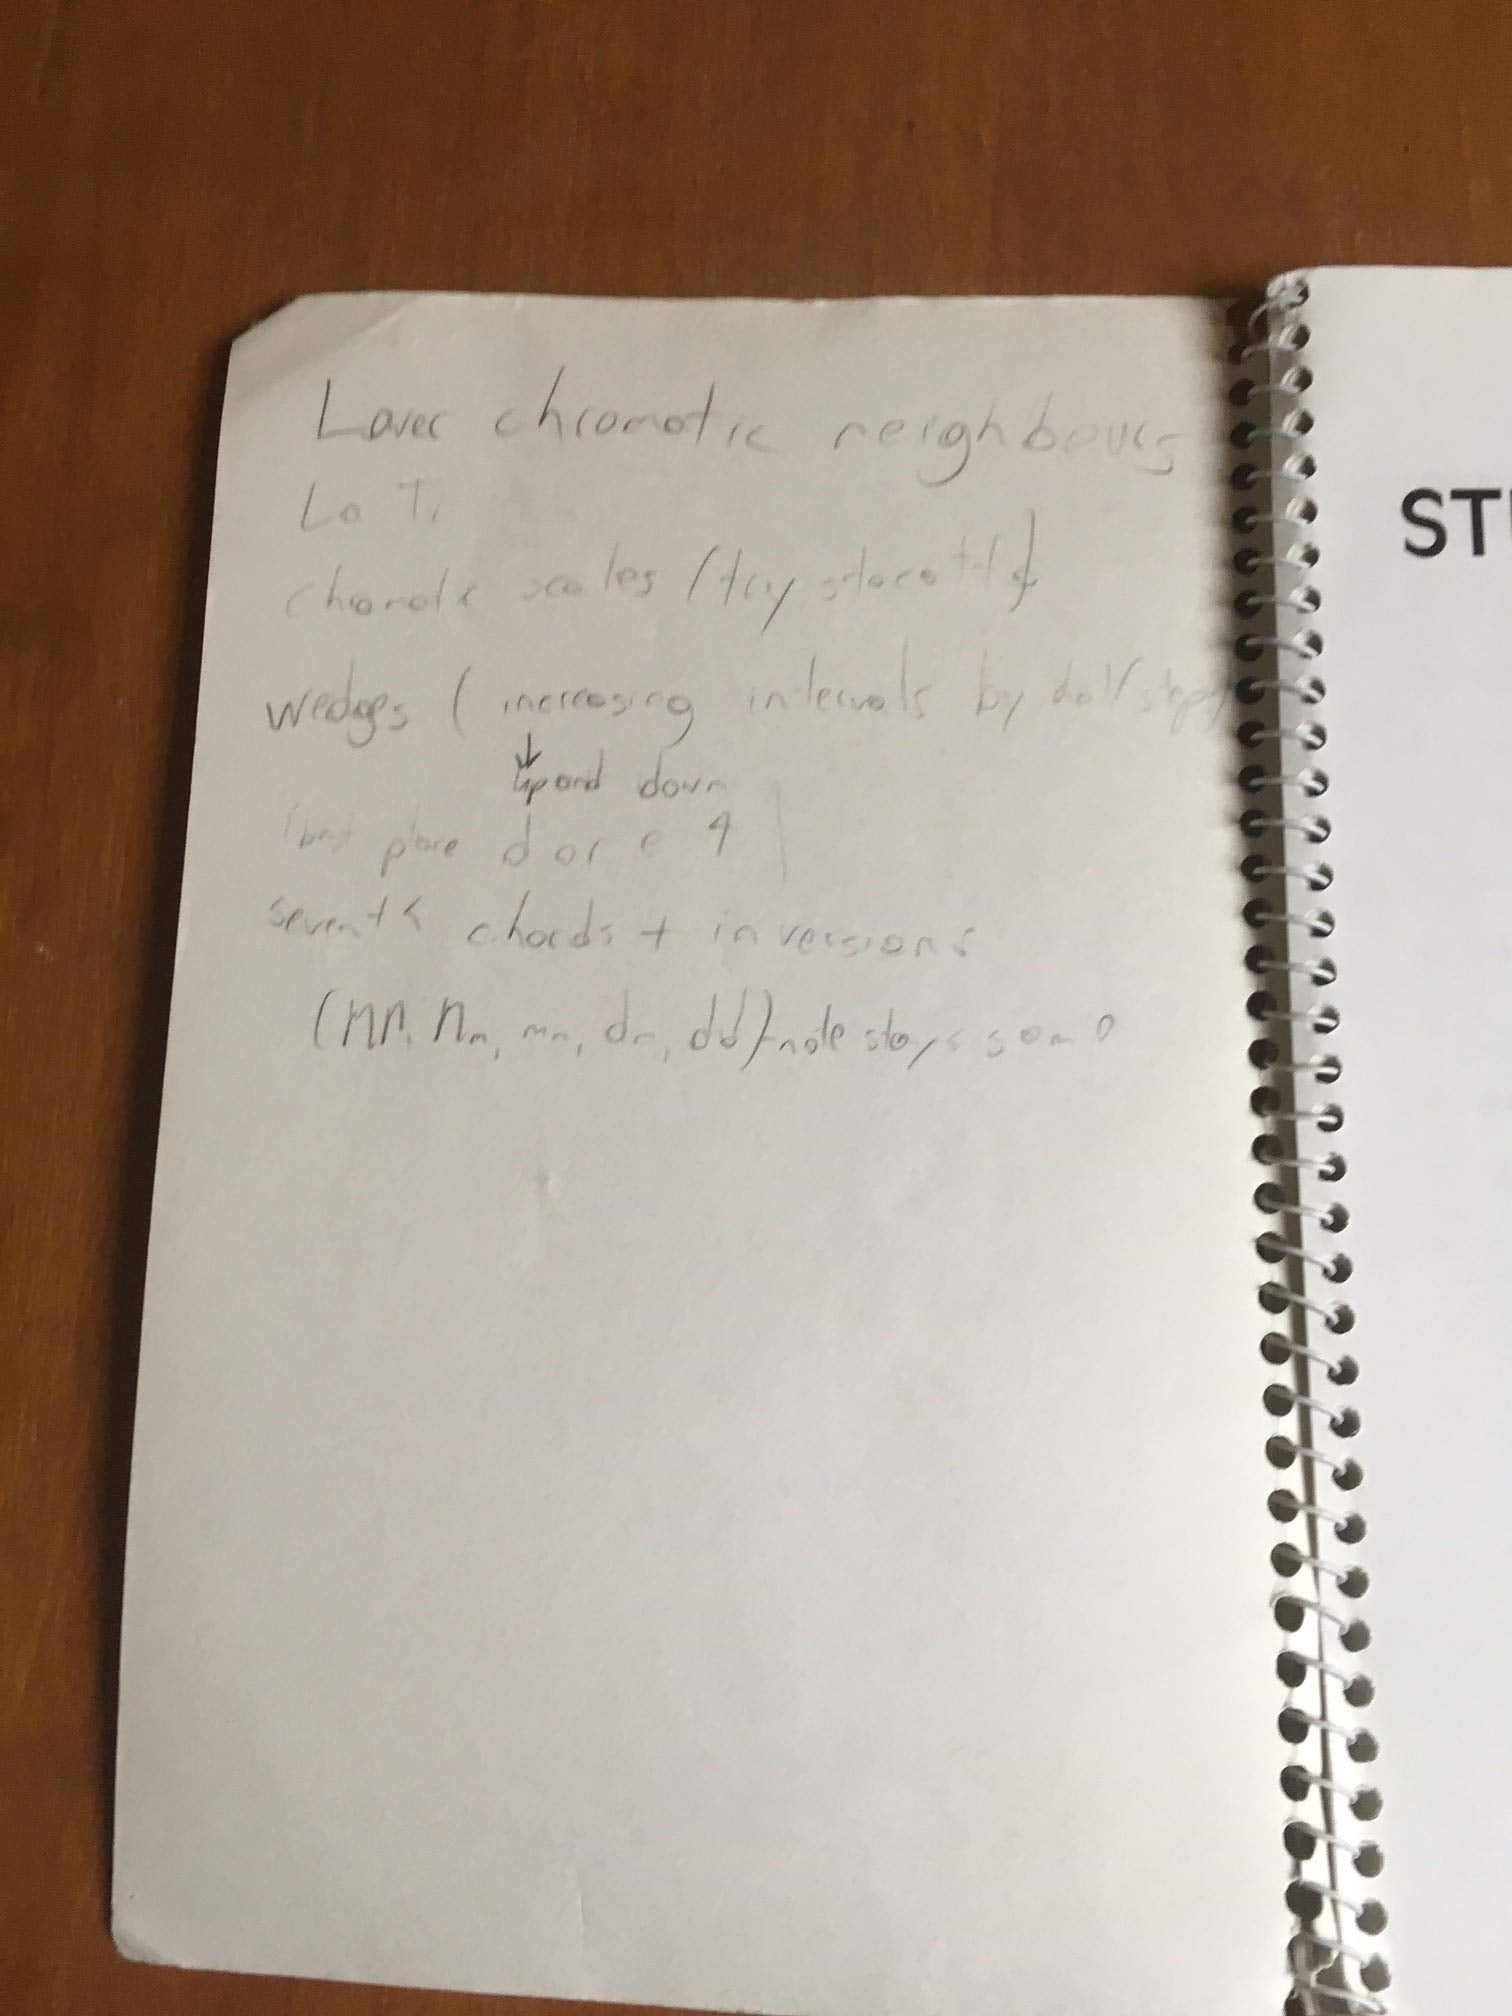 Lower chromatic neighbours
La Ti
chromatic scales (try staccatto)
wedges ( increasing intervals by half steps)
up and down
(best place d or e 4)
seventh chords + inversions
(MM, Mm, mm, dm, dd) - note stays same
ST